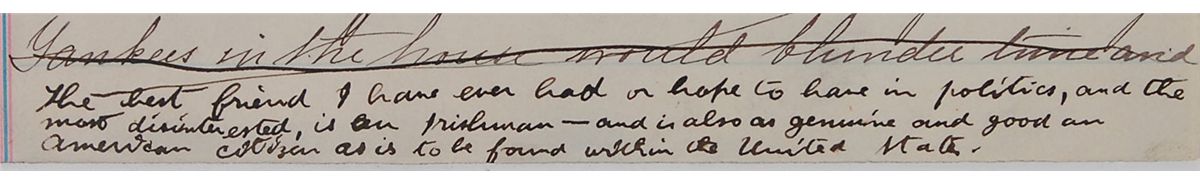 Yankees in the house would blunder time and
the best friend I have ever had or hope to have in politics, and the
most disinterested, is an Irishman — and is also as genuine and good an
American citizen as is to be found within the United States.